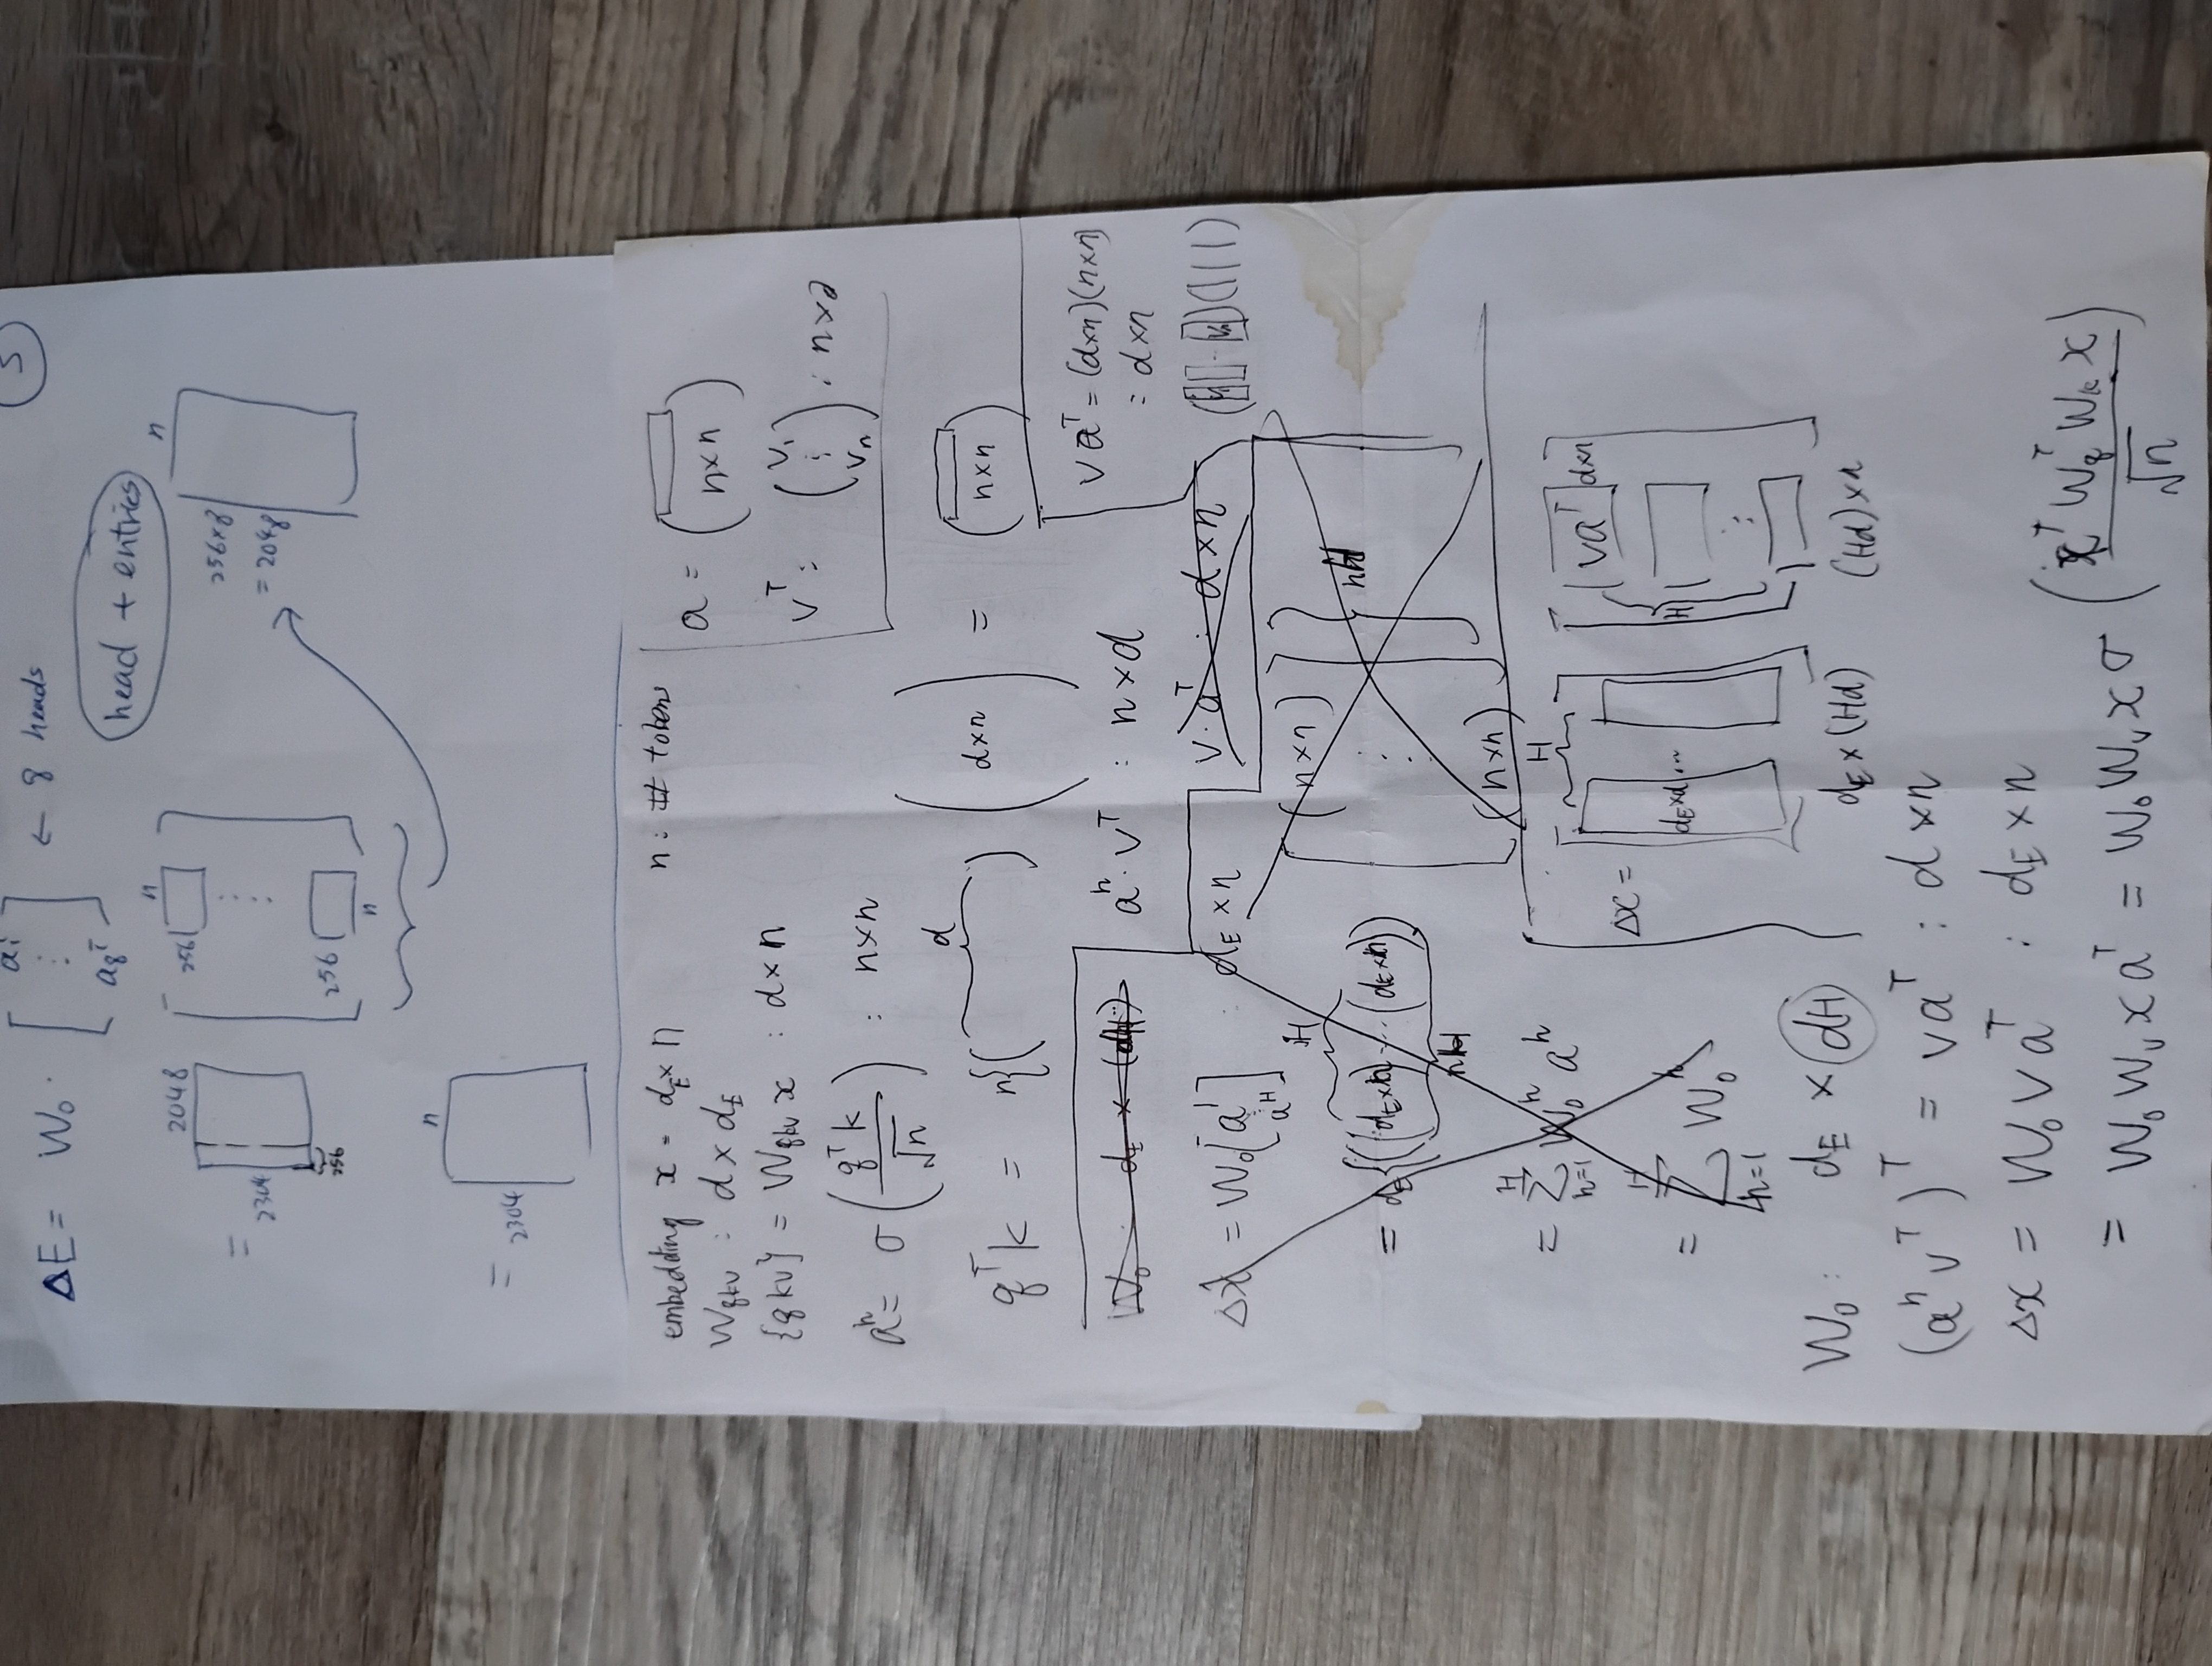 5
ΔE = W₀ · [ a₁ ⋮ a₈ᵀ ] ← 8 heads
head + entries
= 2304 2048 256 [ 256 n ⋮ 256 n ] 256×8 = 2048 n
= 2304 n
embedding x = d_E × n n : # tokens
W_qkv : d × d_E
{qkv} = W_qkv x : d × n
a = ( n×n )
vᵀ : ( v₁ ⋮ vₙ ) : n×d
aʰ = σ ( qᵀk / √n ) : n×n
qᵀk = n{( d ) ( d×n ) = ( n×n )
W₀ : d_E × (dH)
aʰ · vᵀ : n×d
v aᵀ = (d×n)(n×n)
= d×n
v · aᵀ : d×n
Δx = W₀ [ a¹ ⋮ aᴴ ] : d_E × n
= d_E {( (d_E×n) ... (d_E×n) ) H nH [ (n×n) ⋮ (n×n) ] } nH
= Σ_{h=1}^{H} W₀ʰ aʰ
= Σ_{h=1}^{H} W₀ʰ
Δx = [ d_E×d ... ] H [ vaᵀ d×n ⋮ ] H
d_E × (Hd) (Hd)×n
W₀ : d_E × dH
(aʰ vᵀ)ᵀ = vaᵀ : d×n
Δx = W₀ v aᵀ : d_E × n
= W₀ W_v x aᵀ = W₀ W_v x σ ( xᵀ W_qᵀ W_k x / √n )